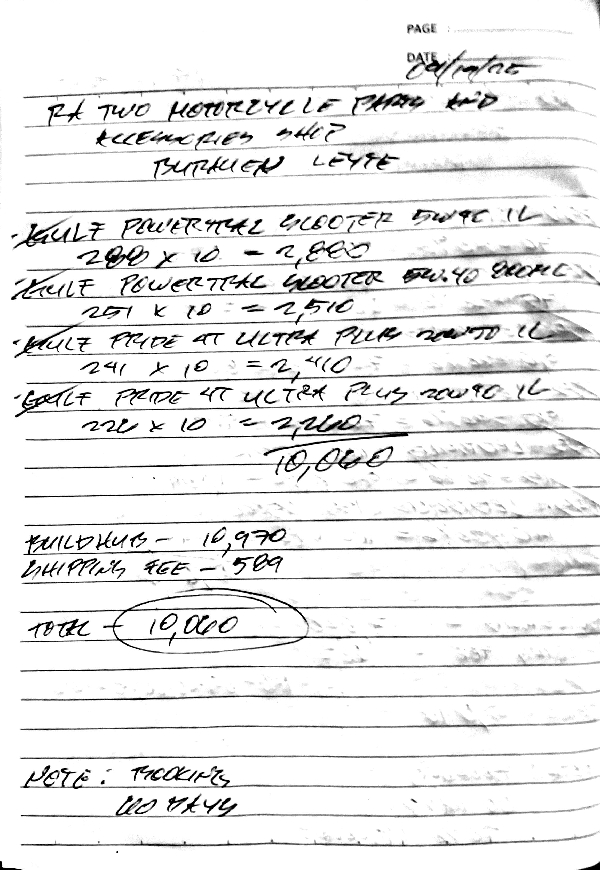 PAGE :
DATE
RA TWO MOTORCYCLE PARTS AND
ACCESSORIES SHOP
BURAUEN LEYTE
GULF POWERTRAC SCOOTER 5W40 1L
288 X 10 = 2,880
GULF POWERTRAC SCOOTER 5W.40 800ML
251 X 10 = 2,510
GULF PRIDE 4T ULTRA PLUS 20W50 1L
241 X 10 = 2,410
GULF PRIDE 4T ULTRA PLUS 20W40 1L
226 X 10 = 2,260
10,060
BUILDHUB -
SHIPPING FEE -
TOTAL - 10,060
NOTE : BOOKING
60 DAYS